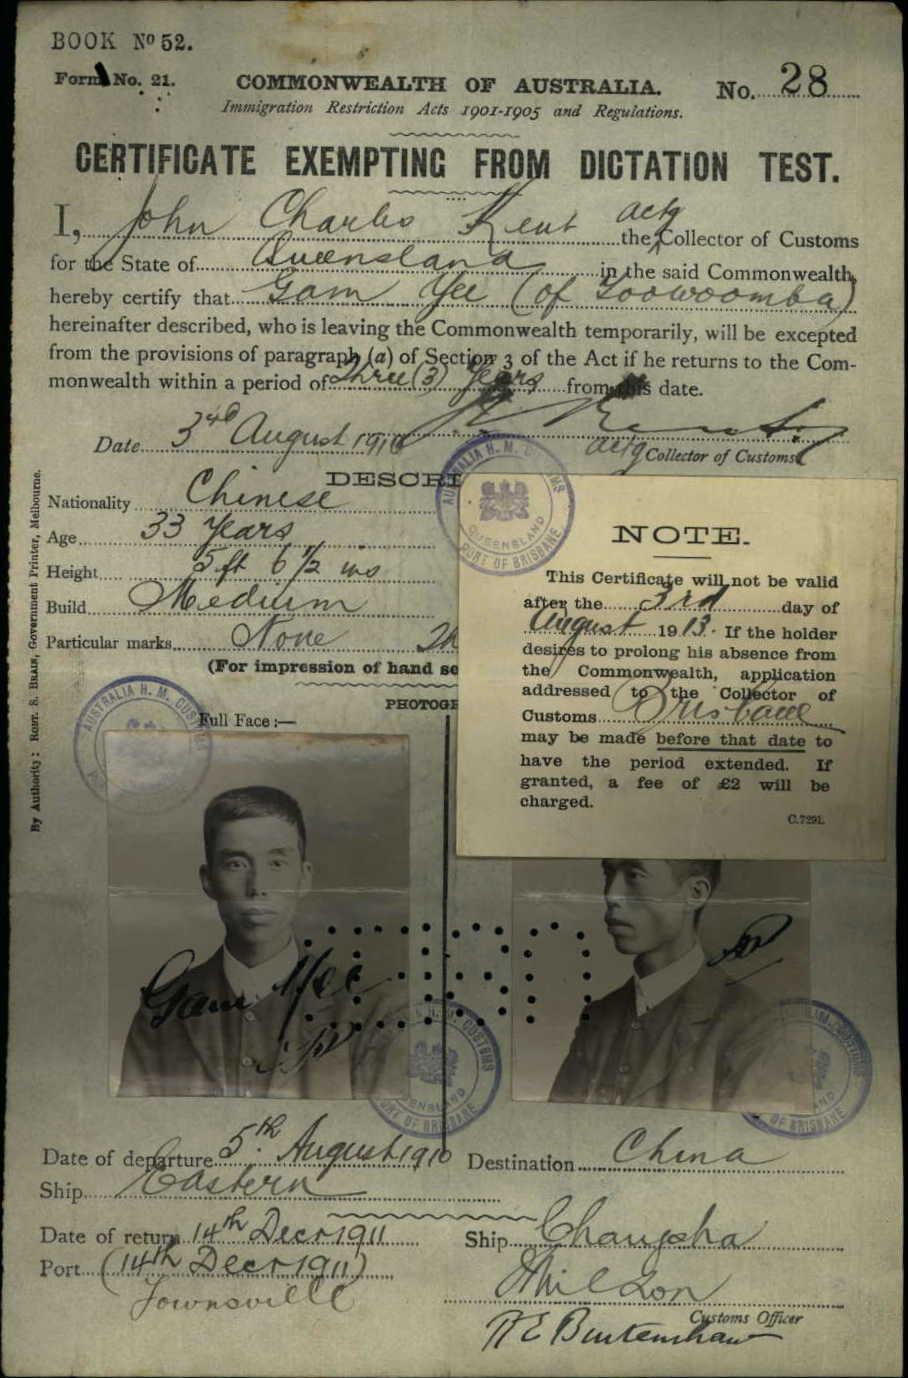 BOOK No 52.
Form No. 21.
COMMONWEALTH OF AUSTRALIA.
No. 28
Immigration Restriction Acts 1901-1905 and Regulations.
CERTIFICATE EXEMPTING FROM DICTATION TEST.
I, John Charles Kent the actg Collector of Customs
for the State of Queensland in the said Commonwealth,
hereby certify that Gam Yee (of Toowoomba)
hereinafter described, who is leaving the Commonwealth temporarily, will be excepted
from the provisions of paragraph (a) of Section 3 of the Act if he returns to the Com-
monwealth within a period of three (3) Years from this date.
Date 3rd August 1910
actg Collector of Customs
DESCRI
Nationality Chinese
Age 33 Years
Height 5 ft 6 1/2 ins
Build Medium
Particular marks None
(For impression of hand se
PHOTOGR
Full Face:—
By Authority: ROBT. S. BRAIN, Government Printer, Melbourne.
AUSTRALIA H. M. CUSTOMS
QUEENSLAND
PORT OF BRISBANE
NOTE.
This Certificate will not be valid
after the 3rd day of
August 1913. If the holder
desires to prolong his absence from
the Commonwealth, application
addressed to the Collector of
Customs Brisbane
may be made before that date to
have the period extended. If
granted, a fee of £2 will be
charged.
C.7291.
Gam Yee
Date of departure 5th August 1910
Destination China
Ship Eastern
Date of return 14th Decr 1911
Ship Changsha
Port (14th Decr 1911)
Townsville
Customs Officer